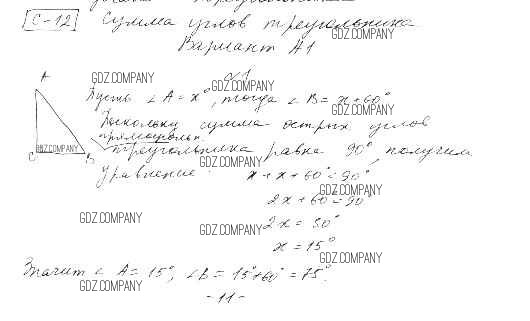 С-12 Сумма углов треугольника
GDZ.COMPANY
Вариант А1
A GDZ.COMPANY №1 GDZ.COMPANY
Пусть ∠A = x°, тогда ∠B = x+60°
GDZ.COMPANY
Поскольку сумма острых углов
прямоугольн.
C GDZ.COMPANY B треугольника равна 90°, получим
GDZ.COMPANY
уравнение: x+x+60°=90°
GDZ.COMPANY
2x+60°=90°
GDZ.COMPANY GDZ.COMPANY 2x = 30°
x = 15°
GDZ.COMPANY
Значит ∠A = 15°, ∠B = 15°+60° = 75°.
GDZ.COMPANY
- 11 -